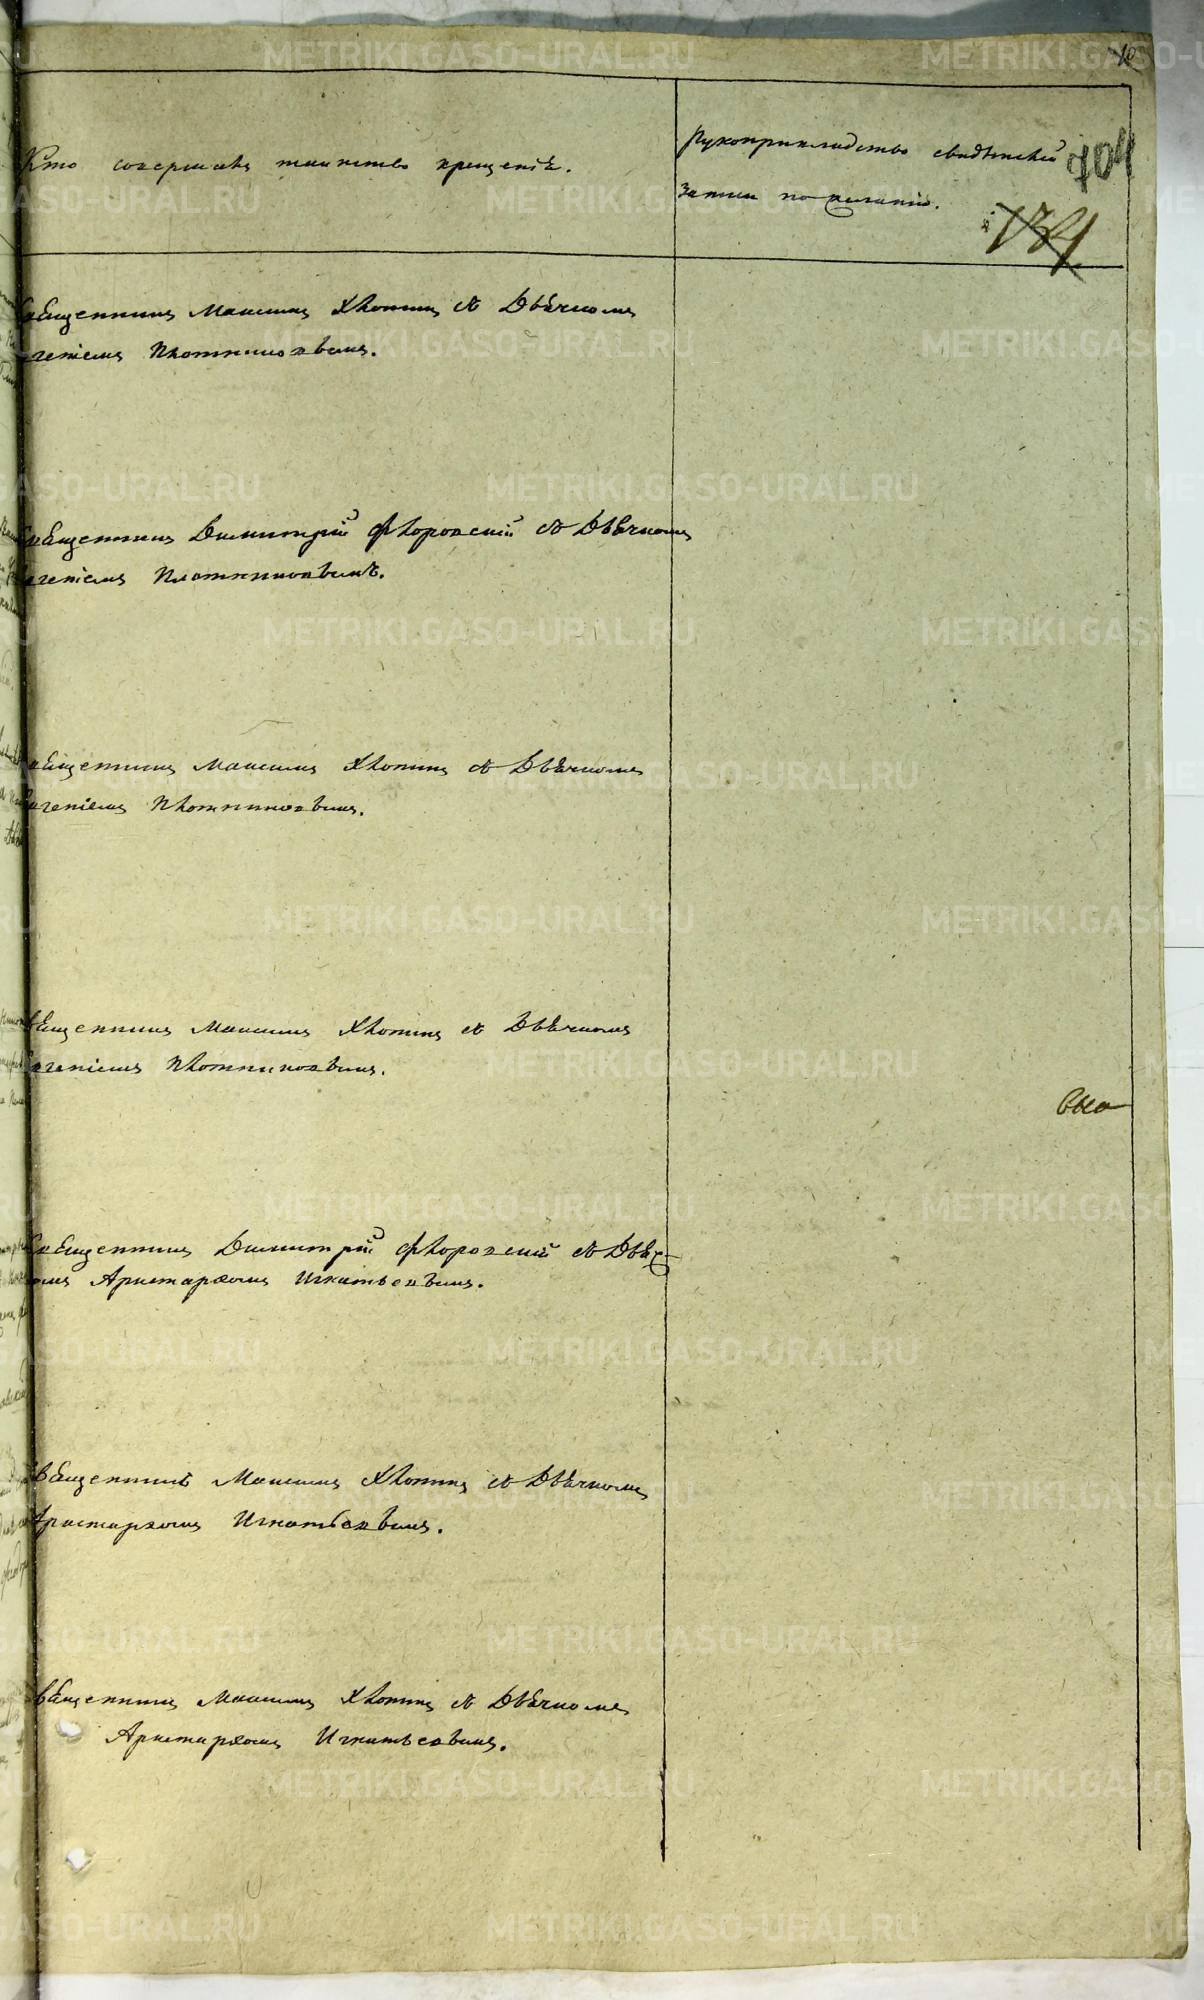 10
Кто совершалъ таинство крещенія.
Рукоприкладство свидѣтелей
записи по желанію.
704
134
Священникъ Максимъ Хлопинъ съ Дьячкомъ
Евгеніемъ Плотниковымъ.
Священникъ Димитрій Флоровскій съ Дьячкомъ
Евгеніемъ Плотниковымъ.
Священникъ Максимъ Хлопинъ съ Дьячкомъ
Евгеніемъ Плотниковымъ.
Священникъ Максимъ Хлопинъ съ Дьячкомъ
Евгеніемъ Плотниковымъ.
Священникъ Димитрій Флоровскій съ Дьяч-
комъ Аристархомъ Игнатьевымъ.
Священникъ Максимъ Хлопинъ съ Дьячкомъ
Аристархомъ Игнатьевымъ.
Священникъ Максимъ Хлопинъ съ Дьячкомъ
Аристархомъ Игнатьевымъ.
METRIKI.GASO-URAL.RU